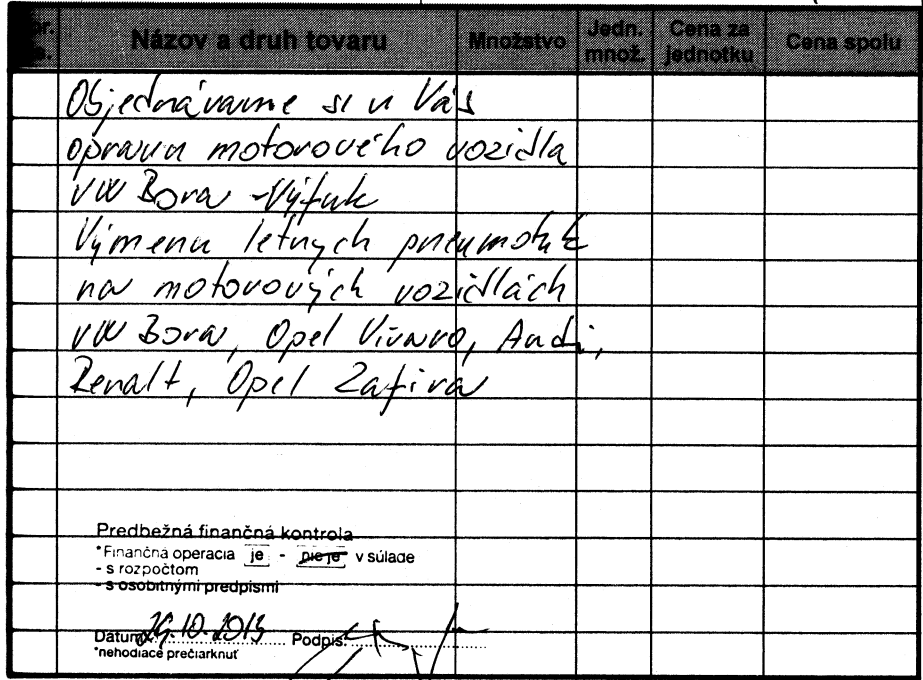 Názov a druh tovaru Množstvo Jedn. množ. Cena za jednotku Cena spolu
Objednávame si u Vás
opravu motorového vozidla
VW Bora - Výfuk
Výmenu letných pneumatik
na motorových vozidlách
VW Bora, Opel Vivaro, Audi,
Renalt, Opel Zafira
Predbežná finančná kontrola
*Finančná operacia je - nie je v súlade
- s rozpočtom
- s osobitnými predpismi
Dátum: 29.10.2013 Podpis:
*nehodiace prečiarknuť